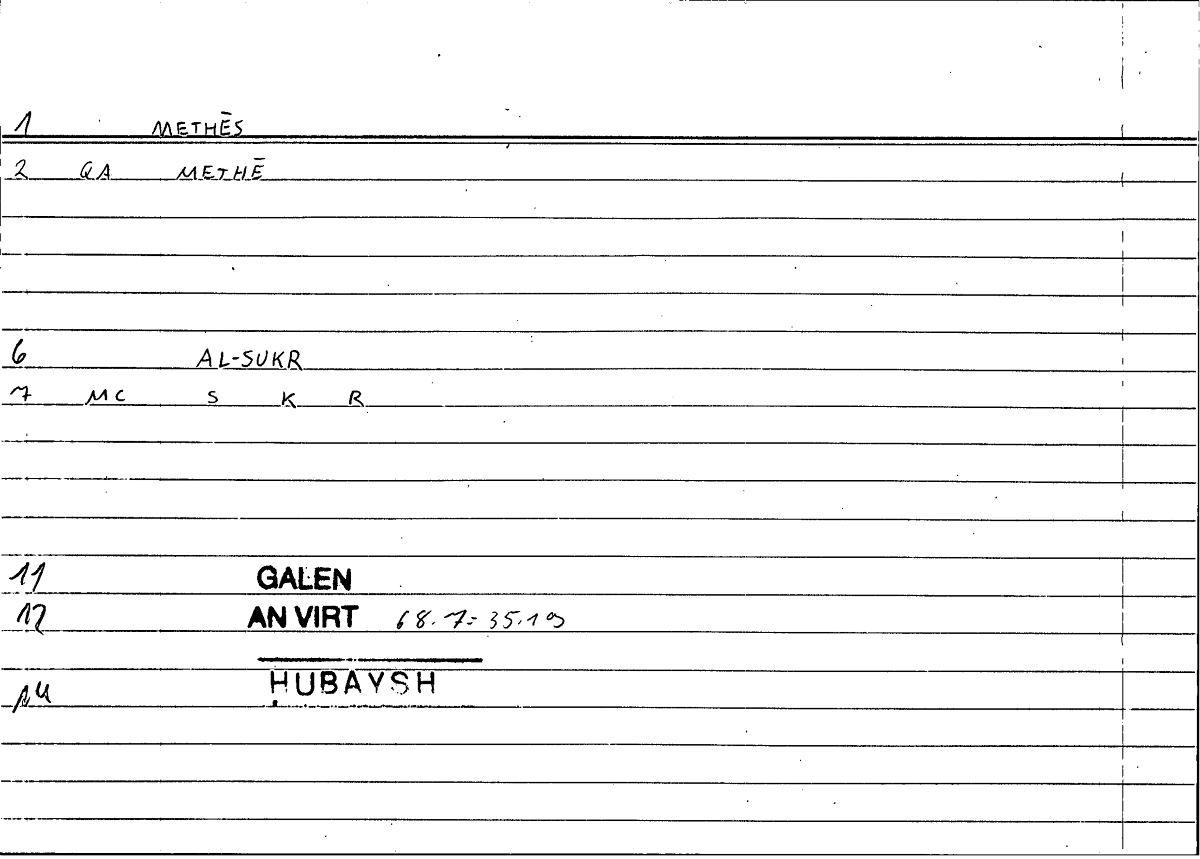 1 METHĒS
2 QA METHĒ
6 AL-SUKR
7 MC S K R
11 GALEN
12 AN VIRT 68.7=35.19
14 HUBAYSH